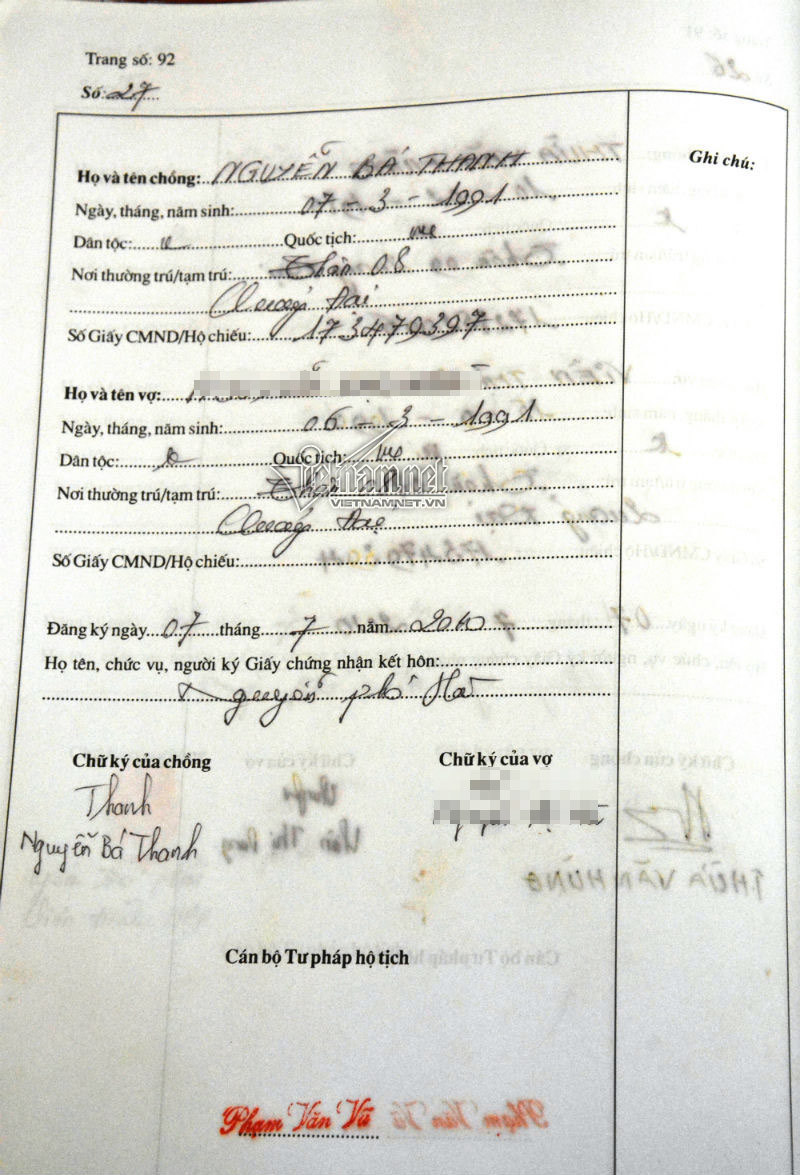 Trang số: 92
Số: 27
Ghi chú:
Họ và tên chồng: NGUYỄN BÁ THANH
Ngày, tháng, năm sinh: 07 - 3 - 1991
Dân tộc: K Quốc tịch: VN
Nơi thường trú/tạm trú: Thôn 08
Quảng Đại
Số Giấy CMND/Hộ chiếu: 173479397
Họ và tên vợ:
Ngày, tháng, năm sinh: 06 - 3 - 1991
Dân tộc: K Quốc tịch: VN
Vietnamnet
VIETNAMNET.VN
Nơi thường trú/tạm trú: Thôn
Quảng Đại
Số Giấy CMND/Hộ chiếu:
Đăng ký ngày 07 tháng 7 năm 2010
Họ tên, chức vụ, người ký Giấy chứng nhận kết hôn:
Nguyễn phố Hai
Chữ ký của chồng Chữ ký của vợ
Thanh
Nguyễn Bá Thanh
Cán bộ Tư pháp hộ tịch
Phạm Văn Vũ